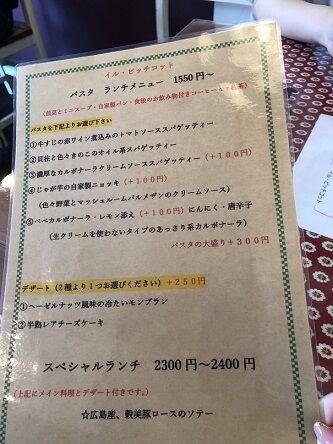 イル・ピッチコット
パスタ ランチメニュー 1550円～
(前菜とミニスープ・自家製パン・食後のお飲み物付きコーヒー
パスタを下記よりお選び下さい
①牛すじの赤ワイン煮込みのトマトソーススパゲッティー
②貝柱と色々きのこのオイル系スパゲッティー
③濃厚なカルボナーラクリームソーススパゲッティー(+100円)
④じゃが芋の自家製ニョッキ (+100円)
(色々野菜とマッシュルームパルメザンのクリームソース)
⑤ペペカルボナーラ・レモン添え (+100円) にんにく・唐辛子
(生クリームを使わないタイプのあっさり系カルボナーラ)
パスタの大盛り+300円
デザート (2種より1つお選びください) +250円
①ヘーゼルナッツ風味の冷たいモンブラン
②半熟レアチーズケーキ
スペシャルランチ 2300円～2400円
(上記にメイン料理とデザート付きです。)
☆広島産、穀美豚ロースのソテー